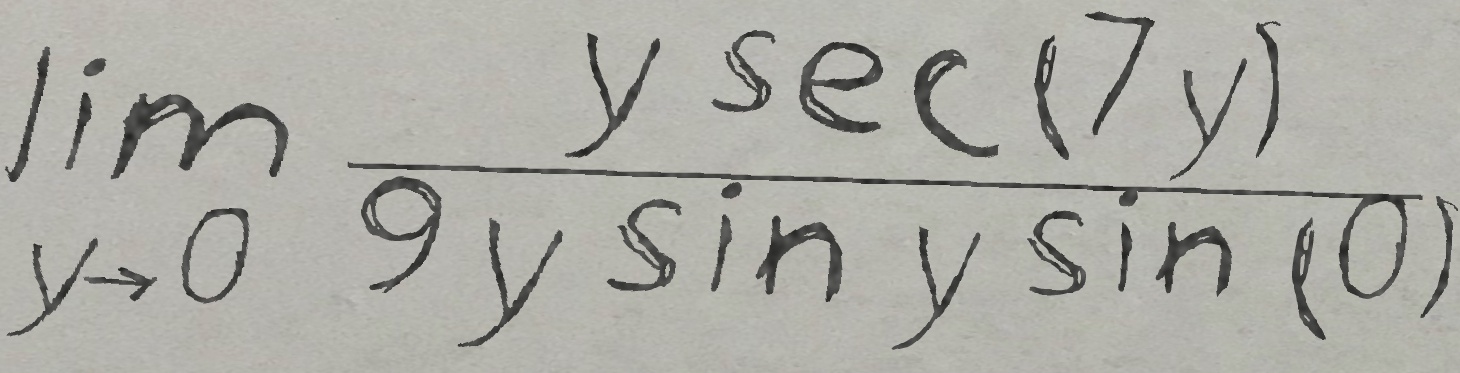 lim y sec(7y)
y→0 9y sin y sin(0)